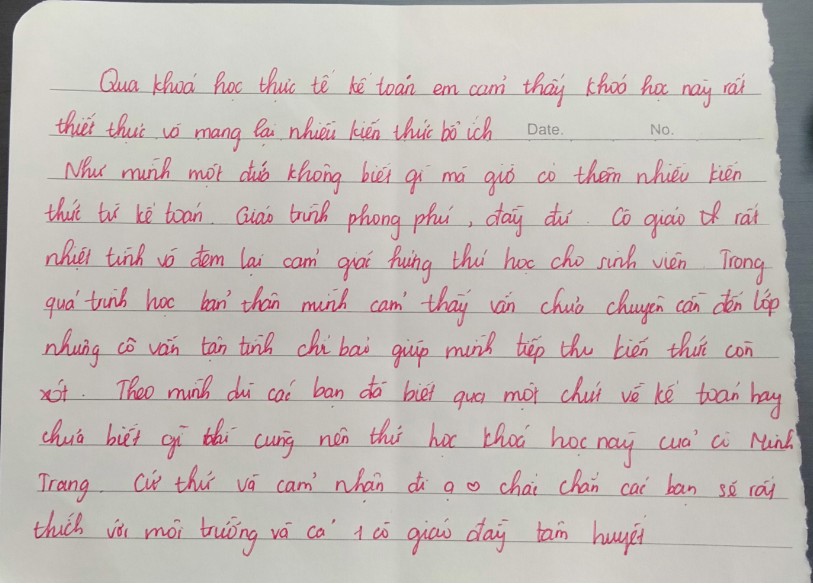 Qua khoá học thực tế kế toán em cảm thấy khoá học này rất
thiết thực và mang lại nhiều kiến thức bổ ích Date. No.
Như mình một đứa không biết gì mà giờ có thêm nhiều kiến
thức từ kế toán. Giáo trình phong phú, đầy đủ. Cô giáo rất
nhiệt tình và đem lại cảm giác hứng thú học cho sinh viên. Trong
quá trình học bản thân mình cảm thấy vẫn chưa chuyên cần đến lớp
nhưng cô vẫn tận tình chỉ bảo giúp mình tiếp thu kiến thức còn
xót. Theo mình dù các bạn đã biết qua một chút về kế toán hay
chưa biết gì thì cũng nên thử học khoá học này của cô Minh
Trang. Cứ thử và cảm nhận đi ạ chắc chắn các bạn sẽ rất
thích với môi trường và cả 1 cô giáo đầy tâm huyết